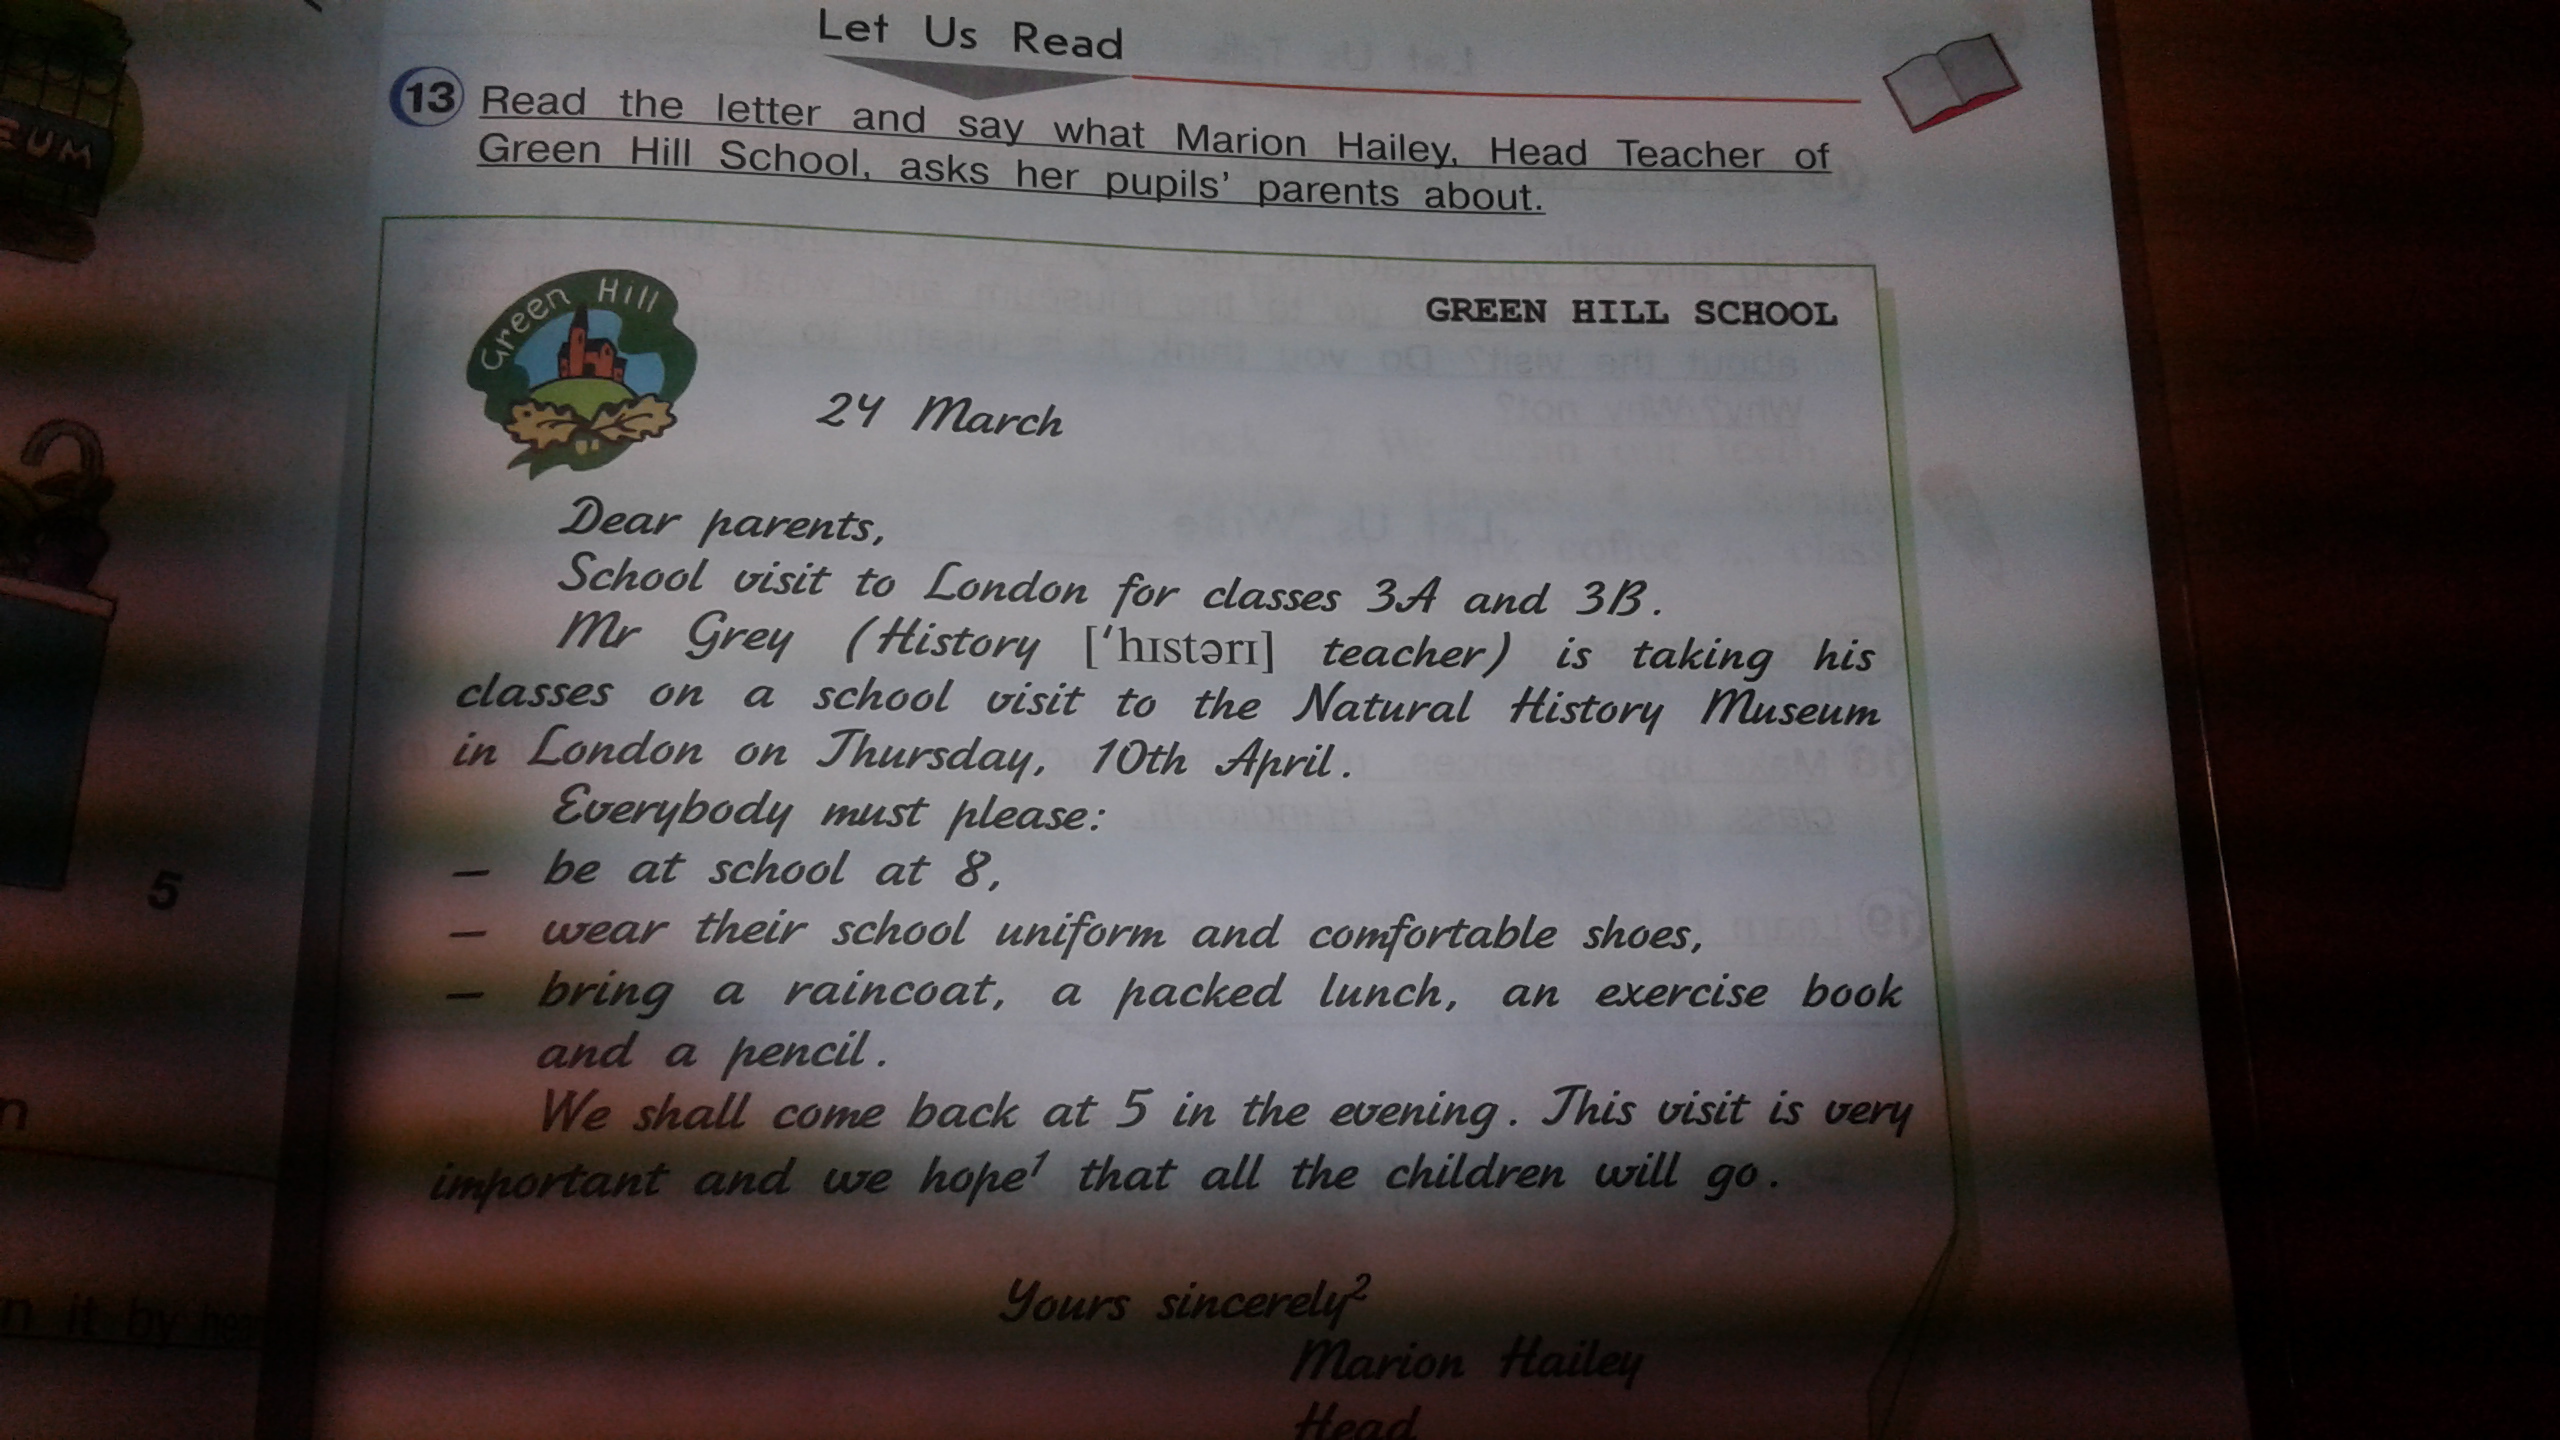 Let Us Read
13 Read the letter and say what Marion Hailey, Head Teacher of
Green Hill School, asks her pupils' parents about.
Green Hill
GREEN HILL SCHOOL
24 March
Dear parents,
School visit to London for classes 3A and 3B.
Mr Grey (History ['hɪstərɪ] teacher) is taking his
classes on a school visit to the Natural History Museum
in London on Thursday, 10th April.
Everybody must please:
— be at school at 8,
— wear their school uniform and comfortable shoes,
— bring a raincoat, a packed lunch, an exercise book
and a pencil.
We shall come back at 5 in the evening. This visit is very
important and we hope¹ that all the children will go.
Yours sincerely²
Marion Hailey
Head
5
it by